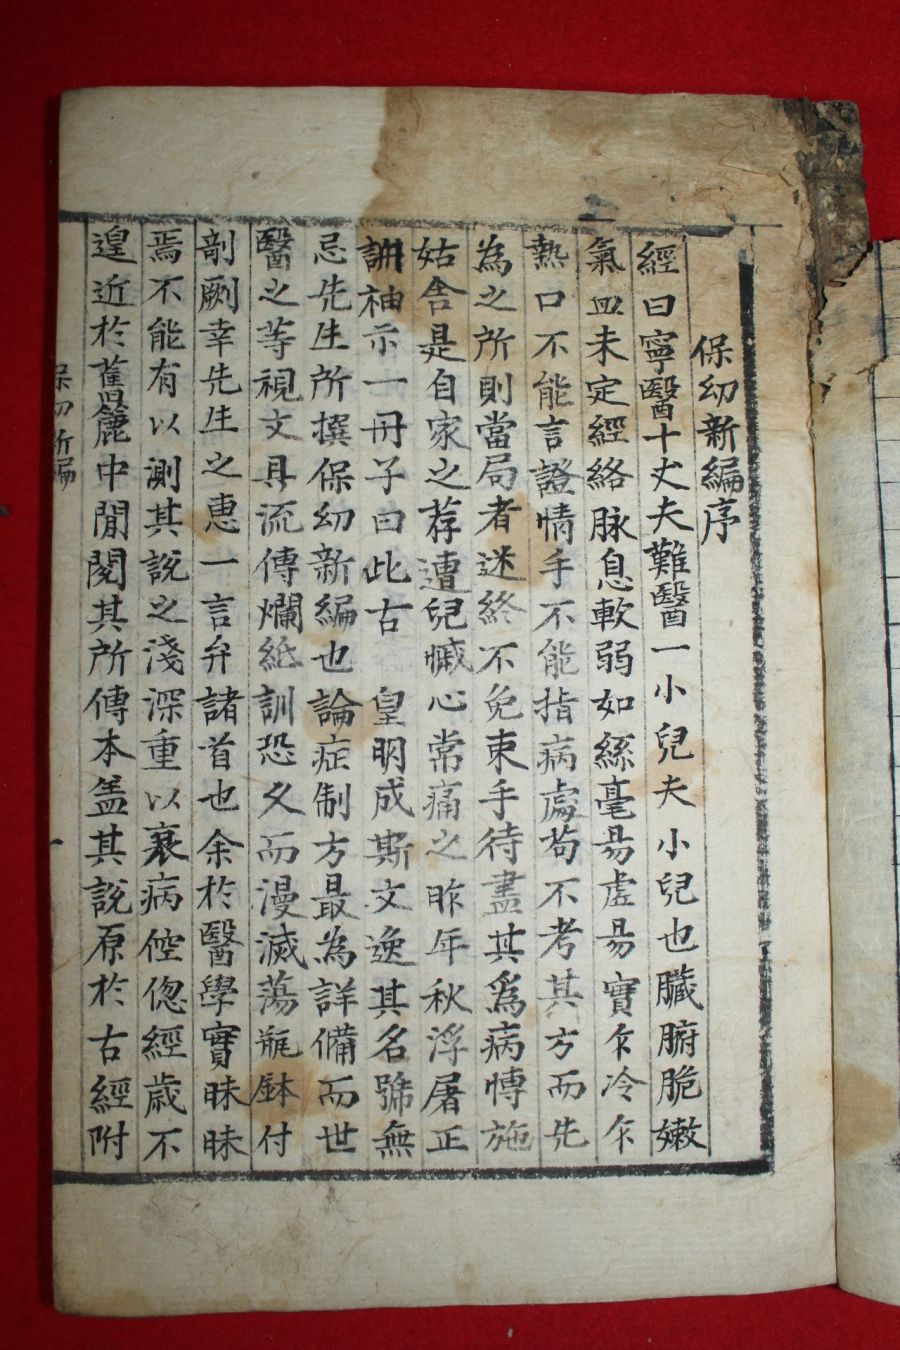 保幼新編序
經曰寧醫十丈夫難醫一小兒夫小兒也臟腑脆嫩
氣血未定經絡脉息軟弱如絲毫易虛易實乍冷乍
熱口不能言證情手不能指病處苟不考其方而先
為之所則當局者迷終不免束手待盡其爲病慱施
姑舍是自家之荐遭兒慽心常痛之昨年秋浮屠正
訷袖示一冊子曰此古 皇明成斯文逸其名號無
忌先生所撰保幼新編也論症制方最為詳備而世
醫之等視文具流傳爛紙訓恐久而漫滅蕩甁鉢付
剞劂幸先生之惠一言弁諸首也余於醫學實昧昧
焉不能有以測其說之淺深重以衰病倥偬經歲不
遑近於舊簏中閒閱其所傳本盖其說原於古經附
保幼新編
一